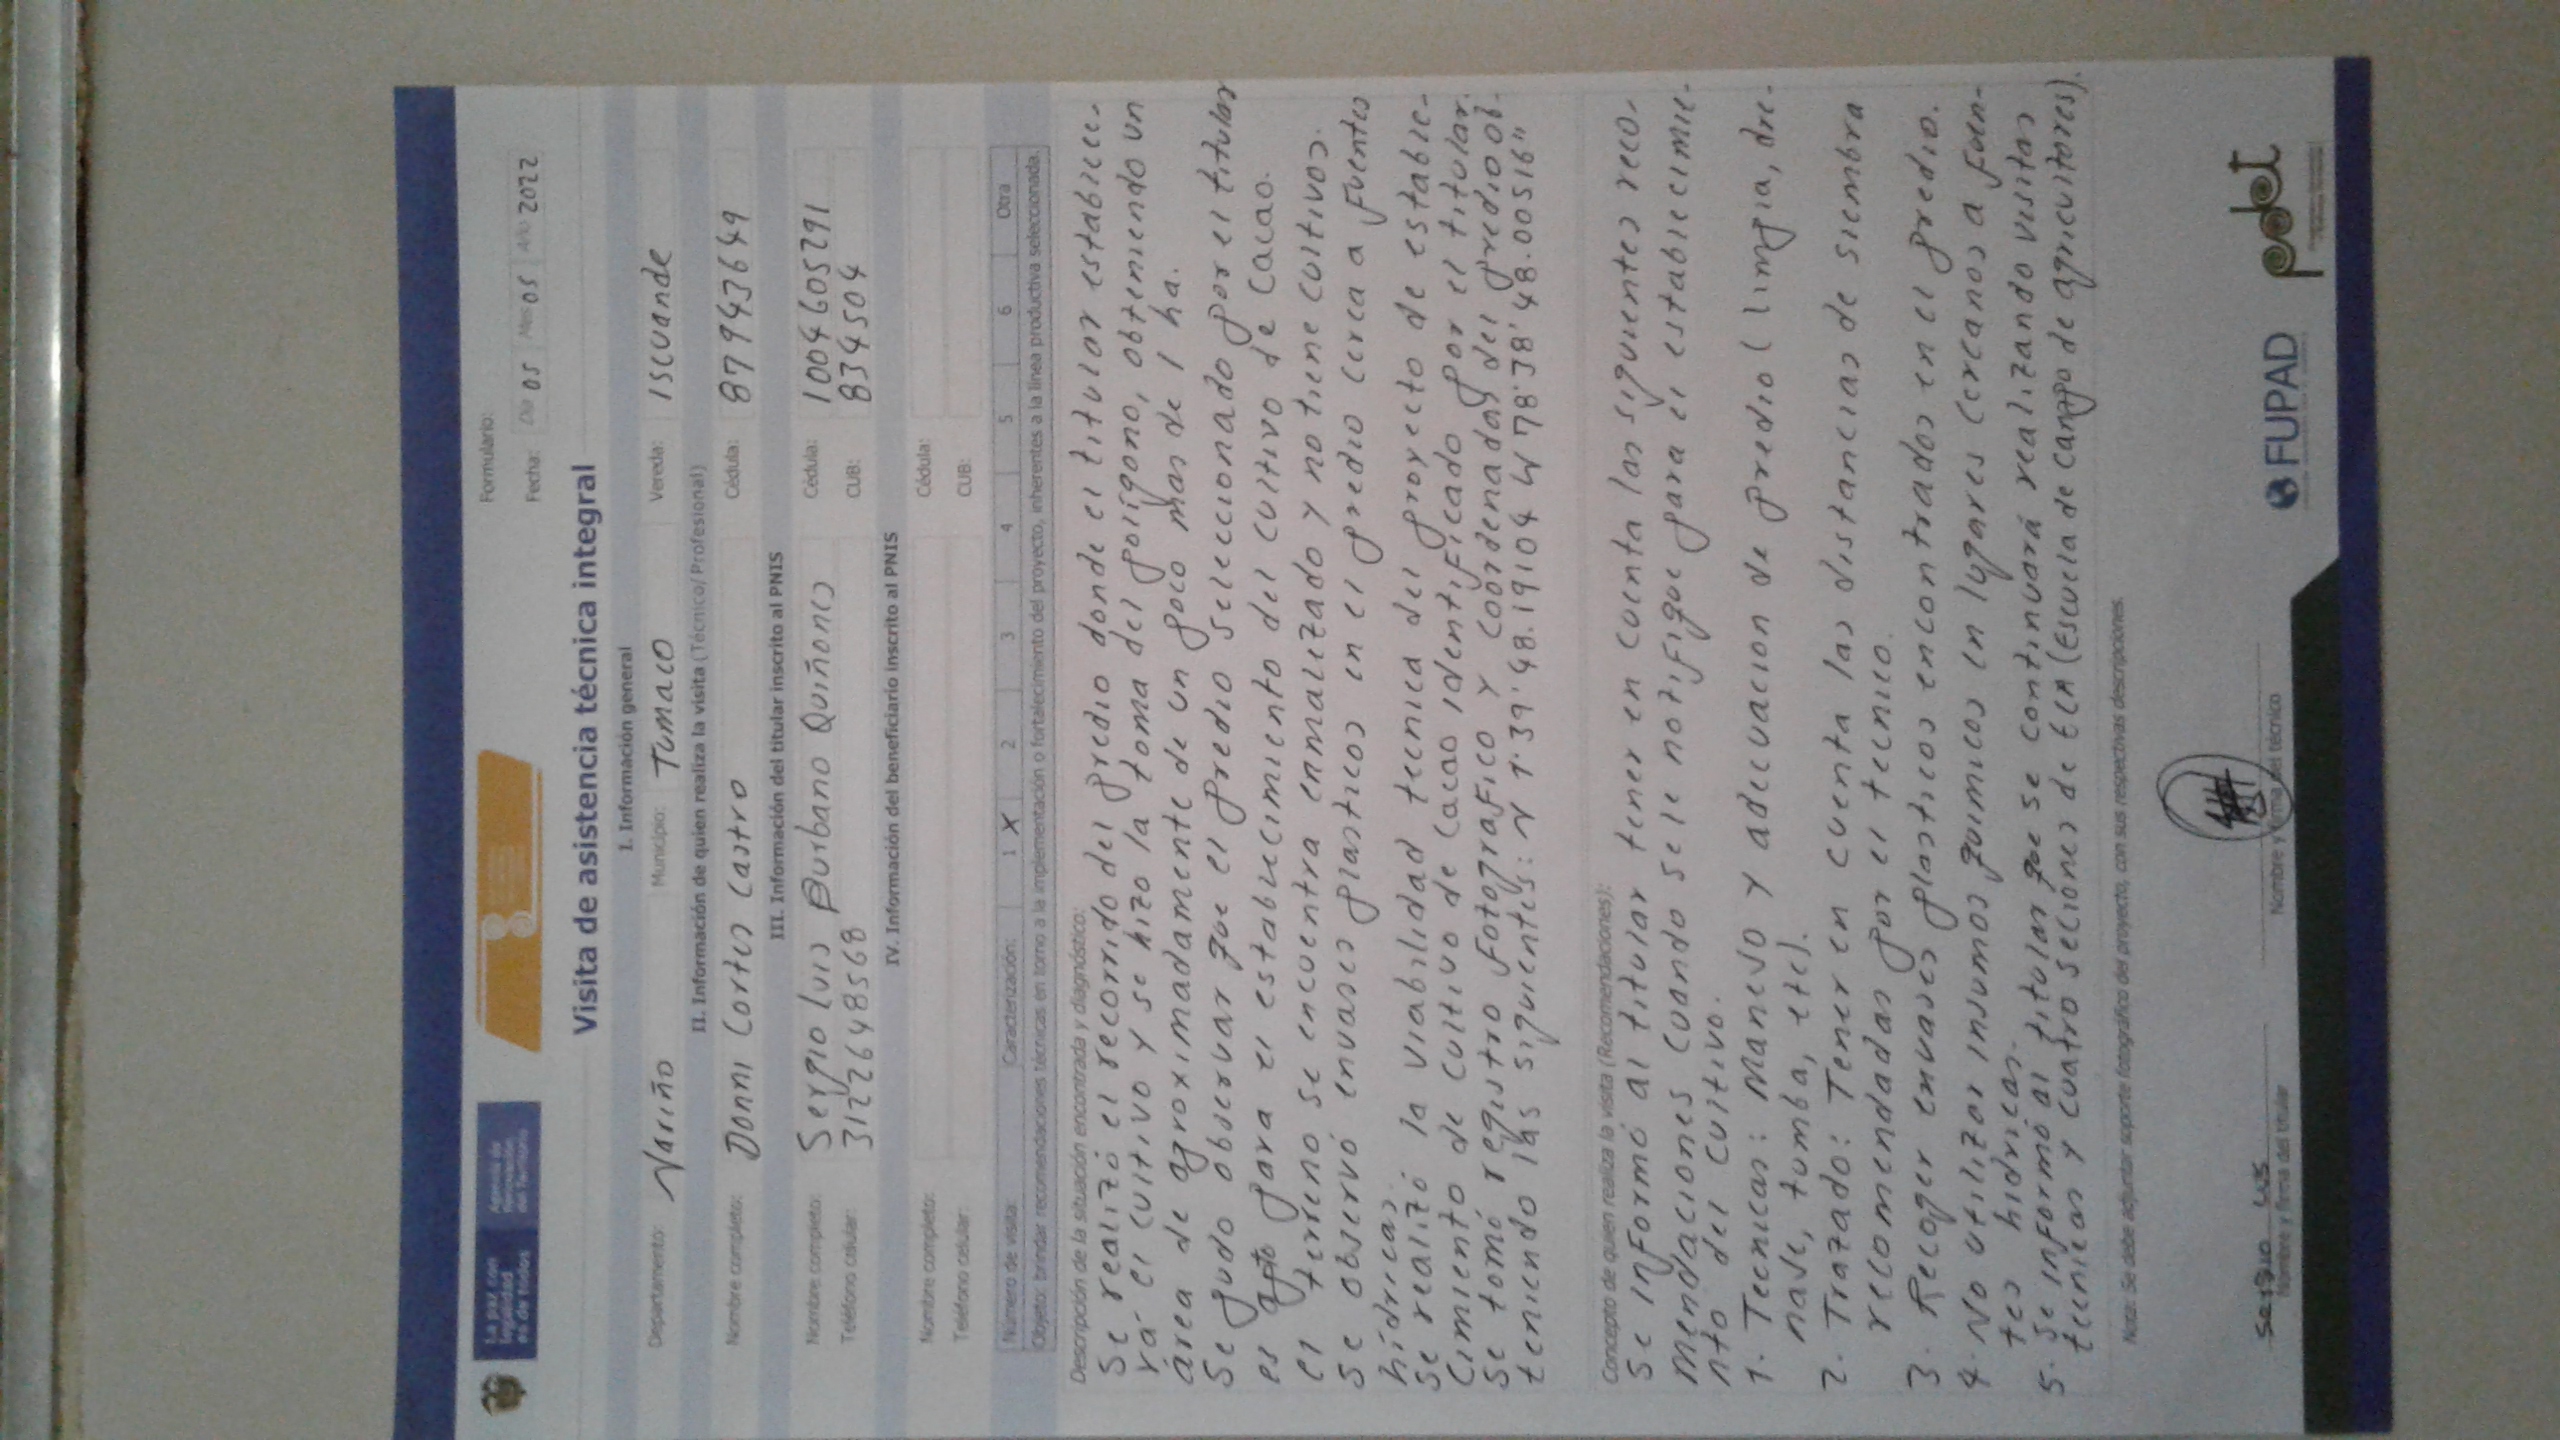 La paz con
legalidad
es de todos
Agencia de
Renovación
del Territorio
Formulario:
Fecha: Día 05 Mes 05 Año 2022
Visita de asistencia técnica integral
I. Información general
Departamento: Nariño Municipio: Tumaco Vereda: Iscuande
II. Información de quien realiza la visita (Técnico/ Profesional)
Nombre completo: Donni Cortes Castro Cédula: 87943649
III. Información del titular inscrito al PNIS
Nombre completo: Sergio Luis Burbano Quiñones Cédula: 1004605291
Teléfono celular: 3122648568 CUB: 8345504
IV. Información del beneficiario inscrito al PNIS
Nombre completo: Cédula:
Teléfono celular: CUB:
Número de visita: Caracterización: 1 X 2 3 4 5 6 Otra
Objeto: brindar recomendaciones técnicas en torno a la implementación o fortalecimiento del proyecto, inherentes a la línea productiva seleccionada.
Descripción de la situación encontrada y diagnóstico:
Se realizó el recorrido del predio donde el titular establece-
rá el cultivo y se hizo la toma del polígono, obteniendo un
área de aproximadamente de un poco mas de 1 ha.
Se pudo observar que el predio seleccionado por el titular
es apto para el establecimiento del cultivo de cacao.
el terreno se encuentra enmalezado y no tiene cultivos.
Se observó envases plasticos en el predio cerca a fuentes
hídricas.
Se realizó la viabilidad tecnica del proyecto de estable-
cimiento de cultivo de cacao identificado por el titular.
Se tomó registro fotografico y coordenadas del predio ob-
teniendo las siguientes: N 1°39'48.19104 W 78°38'48.00516"
Concepto de quien realiza la visita (Recomendaciones):
Se informó al titular tener en cuenta las siguientes reco-
mendaciones cuando se le notifique para el establecimie-
nto del cultivo.
1. Tecnicas: Manejo y adecuacion de predio (limpia, dre-
naje, tumba, etc).
2. Trazado: Tener en cuenta las distancias de siembra
recomendadas por el tecnico.
3. Recoger envases plasticos encontrados en el predio.
4. No utilizar insumos quimicos en lugares cercanos a fuen-
tes hidricas.
5. Se informó al titular que se continuará realizando visitas
tecnicas y cuatro seciones de ECA (Escuela de campo de agricultores).
Nota: Se debe adjuntar soporte fotográfico del proyecto, con sus respectivas descripciones.
Sergio Luis
Nombre y firma del titular
Nombre y firma del técnico
FUPAD
pdet